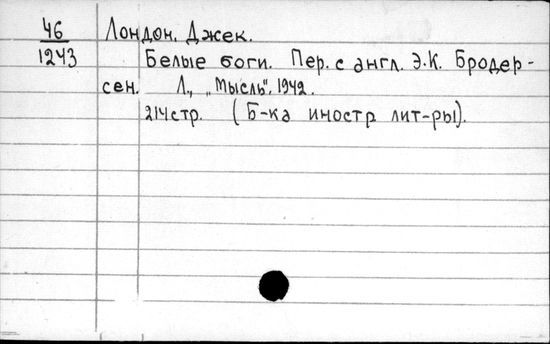 46 Лондон, Джек.
1243 Белые боги. Пер. с англ. Э.К. Бродер-
сен. Л., „Мысль", 1942.
214стр. (Б-ка иностр лит-ры).